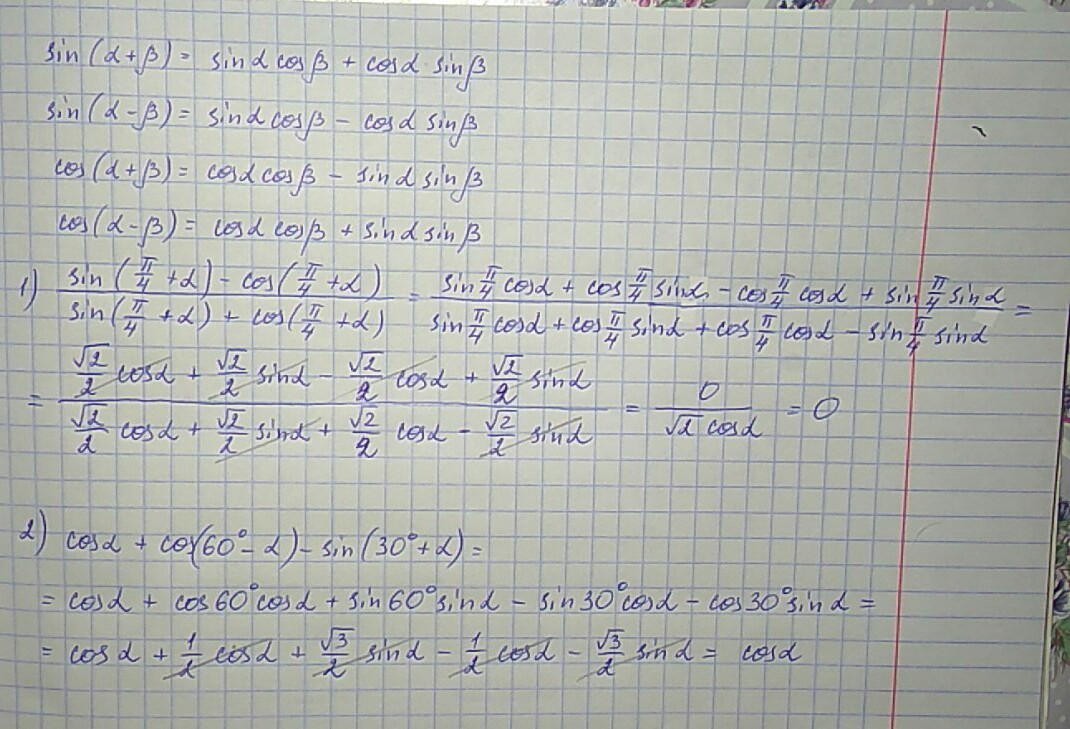 sin(α+β) = sinα cosβ + cosα · sinβ
sin(α-β) = sinα cosβ - cosα sinβ
cos(α+β) = cosα cosβ - sinα sinβ
cos(α-β) = cosα cosβ + sinα sinβ
1) (sin(π/4 + α) - cos(π/4 + α)) / (sin(π/4 + α) + cos(π/4 + α)) = (sin π/4 cosα + cos π/4 sinα - cos π/4 cosα + sin π/4 sinα) / (sin π/4 cosα + cos π/4 sinα + cos π/4 cosα - sin π/4 sinα) =
= (√2/2 cosα + √2/2 sinα - √2/2 cosα + √2/2 sinα) / (√2/2 cosα + √2/2 sinα + √2/2 cosα - √2/2 sinα) = 0 / (√2 cosα) = 0
2) cosα + cos(60° - α) - sin(30° + α) =
= cosα + cos60° cosα + sin60° sinα - sin30° cosα - cos30° sinα =
= cosα + 1/2 cosα + √3/2 sinα - 1/2 cosα - √3/2 sinα = cosα